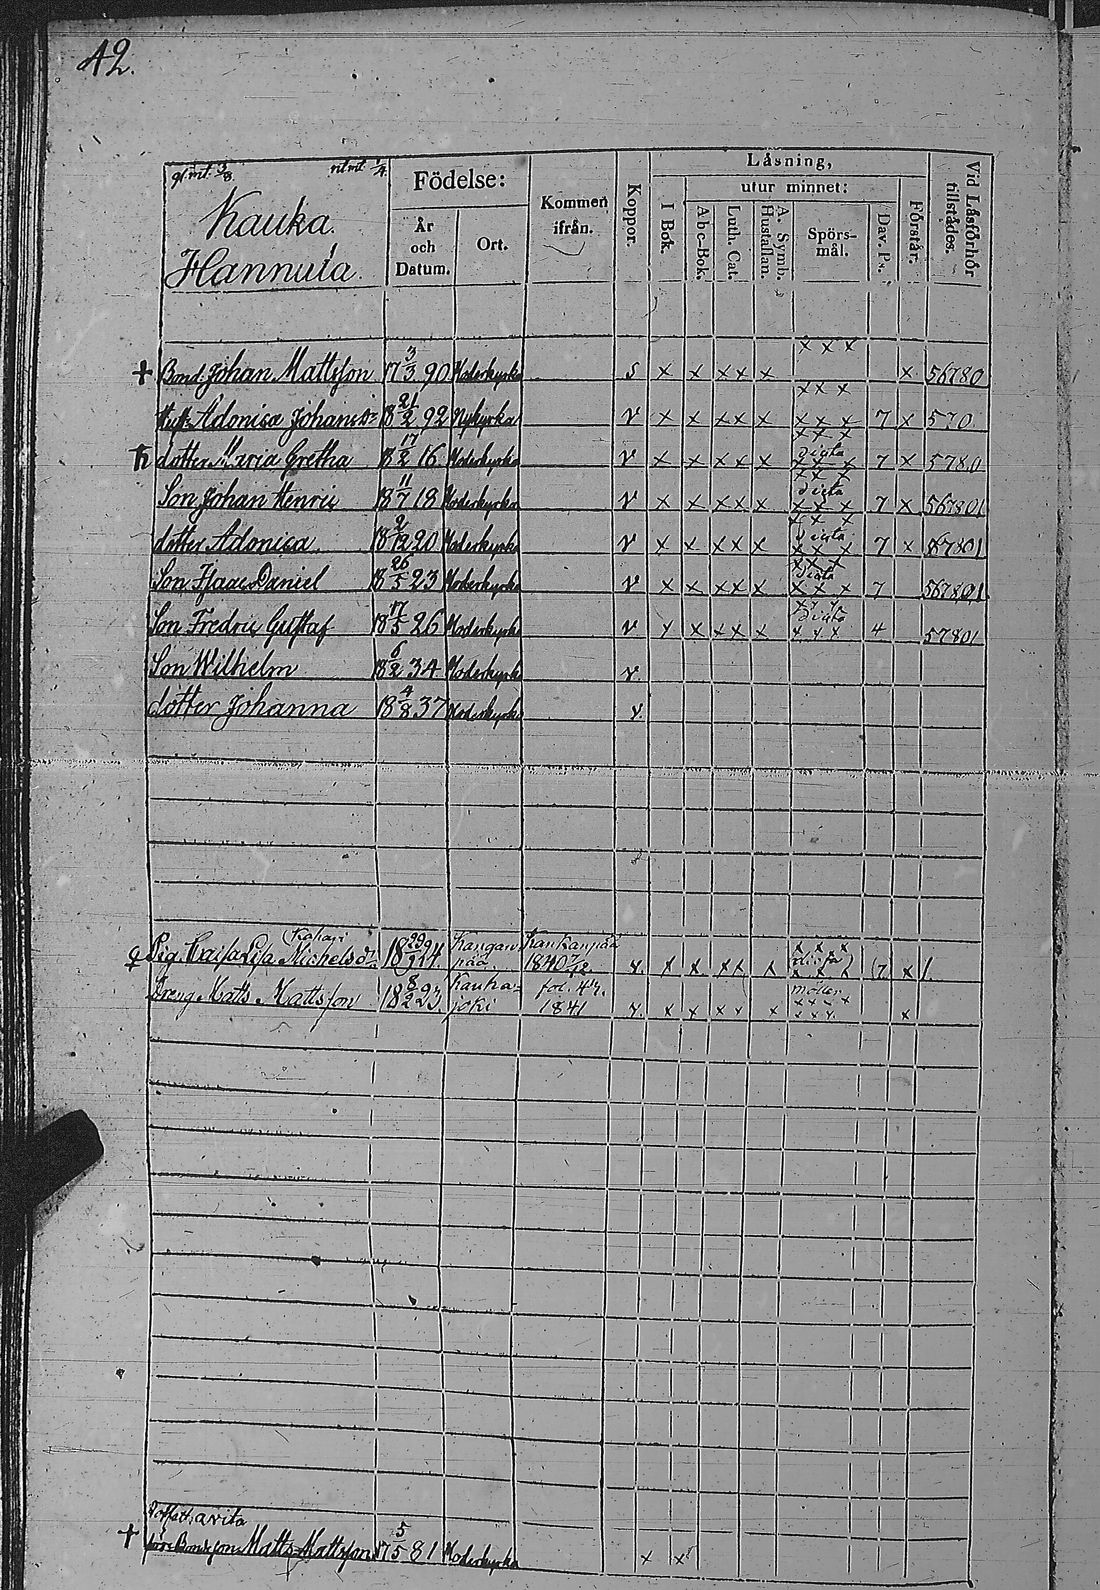 42.
gl. mt. 3/8. nt mt. 1/4.
Kauka.
Hannula.
Födelse:
År och Datum.
Ort.
Kommen ifrån.
Koppor.
Läsning,
utur minnet:
I Bok.
Abc-Bok.
Luth. Cat.
A. Symb. Hustaflan.
Spörsmål.
Dav. Ps.
Förstår.
Vid Läsförhör tillstådes.
x x x
+ Bond. Johan Mattsson 17 3/3 90 Moderkyrka S x x x x x x 56780
x x x
Hust. Adonisa Johansdr 18 21/2 92 Nykyrka V x x x x x x x x 7 x 570
x x x
dotter Maria Gretha 18 17/2 16 Moderkyrka V x x x x x dista x x x 7 x 5780
x x x
Son Johan Henric 18 11/7 18 Moderkyrka V x x x x x dista x x x 7 x 567801
x x x
dotter Adonisa 18 2/12 20 Moderkyrka V x x x x x dista x x x 7 x 67801
x x x
Son Isaac Daniel 18 26/5 23 Moderkyrka V x x x x x dista x x x 7 567801
x x x
Son Fredric Gustaf 18 17/5 26 Moderkyrka V x x x x x dista x x x 4 57801
Son Wilhelm 18 6/2 34 Moderkyrka V
dotter Johanna 18 4/8 37 Moderkyrka V.
Pig. Caisa Lisa Michelsdr 18 29/9 24. Kangan pää Kankanpää 1840 7/12. V. x x x x x x x x 7 x 1
Dreng Matts Mattsson 18 8/2 23. Kauhajoki fol. 47. 1841 V. x x x x x x x x x x x x
+ Matts Mattsson 17 5/5 81 Moderkyrka x x